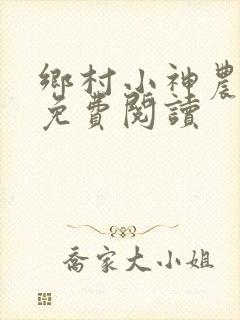 鄉村小神農
免費閱讀
喬家大小姐